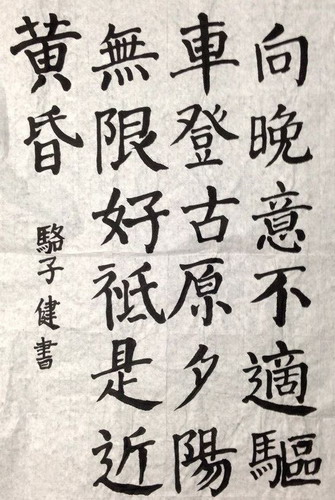 向晚意不適驅
車登古原夕陽
無限好祗是近
黃昏
駱子健書